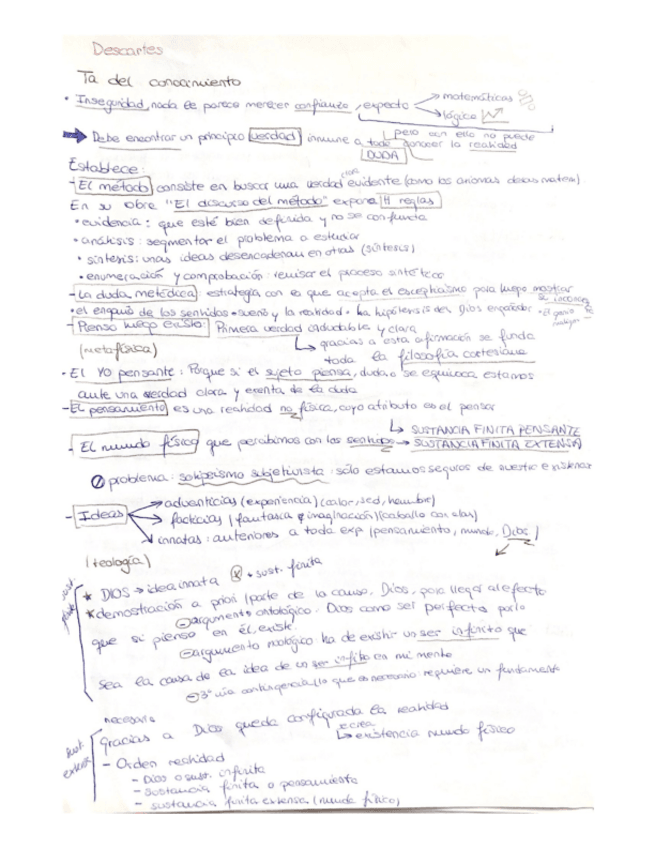 Descartes
Ta del conocimiento
• Inseguridad, nada le parece merecer confianza, excepto → matemáticas
→ lógica
pero con ello no puede
→ Debe encontrar un principio verdad inmune a toda conocer la realidad
DUDA
Establece:
- El método consiste en buscar una verdad clara evidente (como los axiomas de las mates)
En su obra "El discurso del método" expone 4 reglas
• evidencia: que esté bien definida y no se confunda
• análisis: segmentar el problema a estudiar
• síntesis: unas ideas desencadenan en otras (síntesis)
• enumeración y comprobación: revisar el proceso
- La duda metódica: estrategia con la que acepta el escepticismo para luego mostrar
• el engaño de los sentidos • sueño y la realidad • La hipótesis del Dios engañador • El genio maligno
- Pienso luego existo: Primera verdad indudable y clara
↳ gracias a esta afirmación se funda
(metafísica) toda la filosofía cartesiana
• El YO pensante: Porque si el sujeto piensa, duda o se equivoca estamos
ante una verdad clara y exenta de la duda
- El pensamiento es una realidad no física, cuyo atributo es el pensar
↳ SUSTANCIA FINITA PENSANTE
- El mundo físico que percibimos con los sentidos → SUSTANCIA FINITA EXTENSA
problema: solipsismo subjetivista: sólo estamos seguros de nuestra existencia
- Ideas → adventicias (experiencia) (calor, sed, hambre)
→ facticias (fantasía e imaginación) (caballo con alas)
→ innatas: anteriores a toda exp (pensamiento, mundo, Dios)
(teología)
* DIOS → idea innata
* demostración a priori (parte de la causa, Dios, para llegar al efecto
- argumento ontológico. Dios como ser perfecto por lo
que si pienso en él, existe
- argumento noológico ha de existir un ser infinito que
sea la causa de la idea de un ser infinito en mi mente
- 3ª vía contingencia (lo que es necesario requiere un fundamento
necesario
Gracias a Dios queda configurada la realidad
↳ existencia mundo físico
- Orden realidad
- Dios o sust. infinita
- sustancia finita o pensamiento
- sustancia finita extensa (mundo físico)